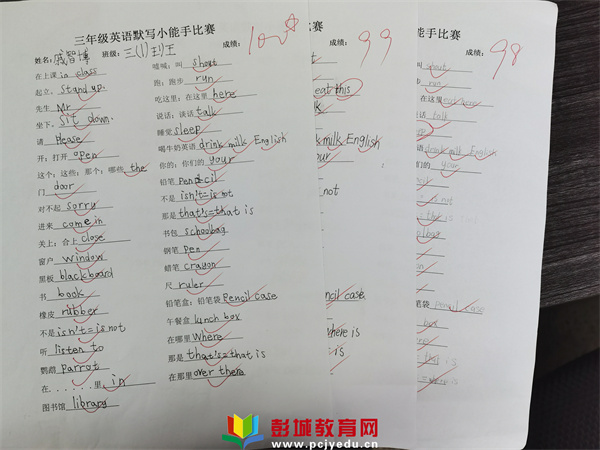 三年级英语默写小能手比赛
姓名: 班级: 三(1)班 成绩: 100
在上课 in class
起立 stand up.
先生 Mr
坐下 sit down.
请 Please
开;打开 open
这个;这些;那个;哪些 the
门 door
对不起 sorry
进来 come in
关上;合上 close
窗户 window
黑板 blackboard
书 book
橡皮 rubber
不是 isn't=is not
听 listen to
鹦鹉 Parrot
在......里 in
图书馆 library
喊;叫 shout
跑;跑步 run
吃这里;在这里 here
说话;谈话 talk
睡觉 sleep
喝牛奶英语 drink milk English
你的;你们的 your
铅笔 Pencil
不是 isn't=is not
那是 that's=that is
书包 schoolbag
钢笔 Pen
蜡笔 crayon
尺 ruler
铅笔盒;铅笔袋 Pencil case
午餐盒 lunch box
在哪里 Where
那是 that's=that is
在那里 over there
手比赛
成绩: 99
eat this
milk English
not
pencil case
where is
is
手比赛
成绩: 98
叫 shout
步 run
在这里
话 talk
drink milk English
your
not
is
bag
笔袋 Pencil case
box
is
there
彭城教育网
www.pcjyedu.cn